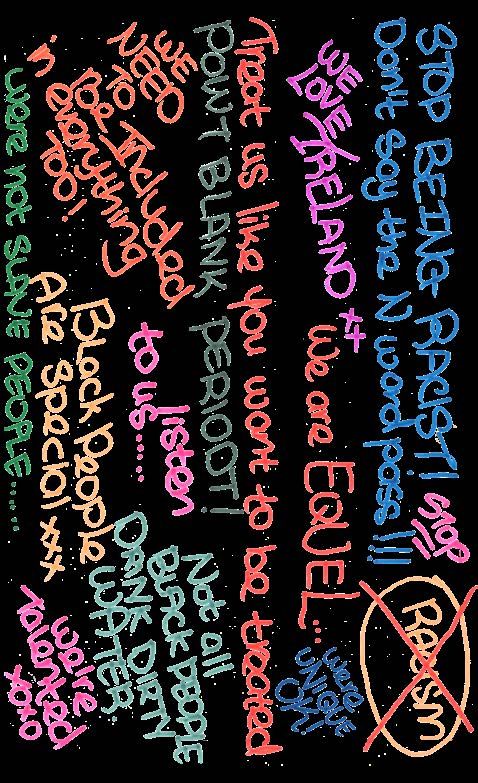 STOP BEING RACIST!
STOP!!
Don't say the N word pass!!!
Racism
WE
LOVE IRELAND xx
We are EQUEL...
we're
UNIQUE
OK!
Treat us like you want to be treated
POWT BLANK PERIODT!
WE
NEED
TO
be Included
in everything
TOO!
listen
to us.....
Not all
BLACK PEOPLE
DRINK DIRTY
WATER
Black People
Are Special xxx
we're
Talented
xoxo
were not SLAVE PEOPLE......